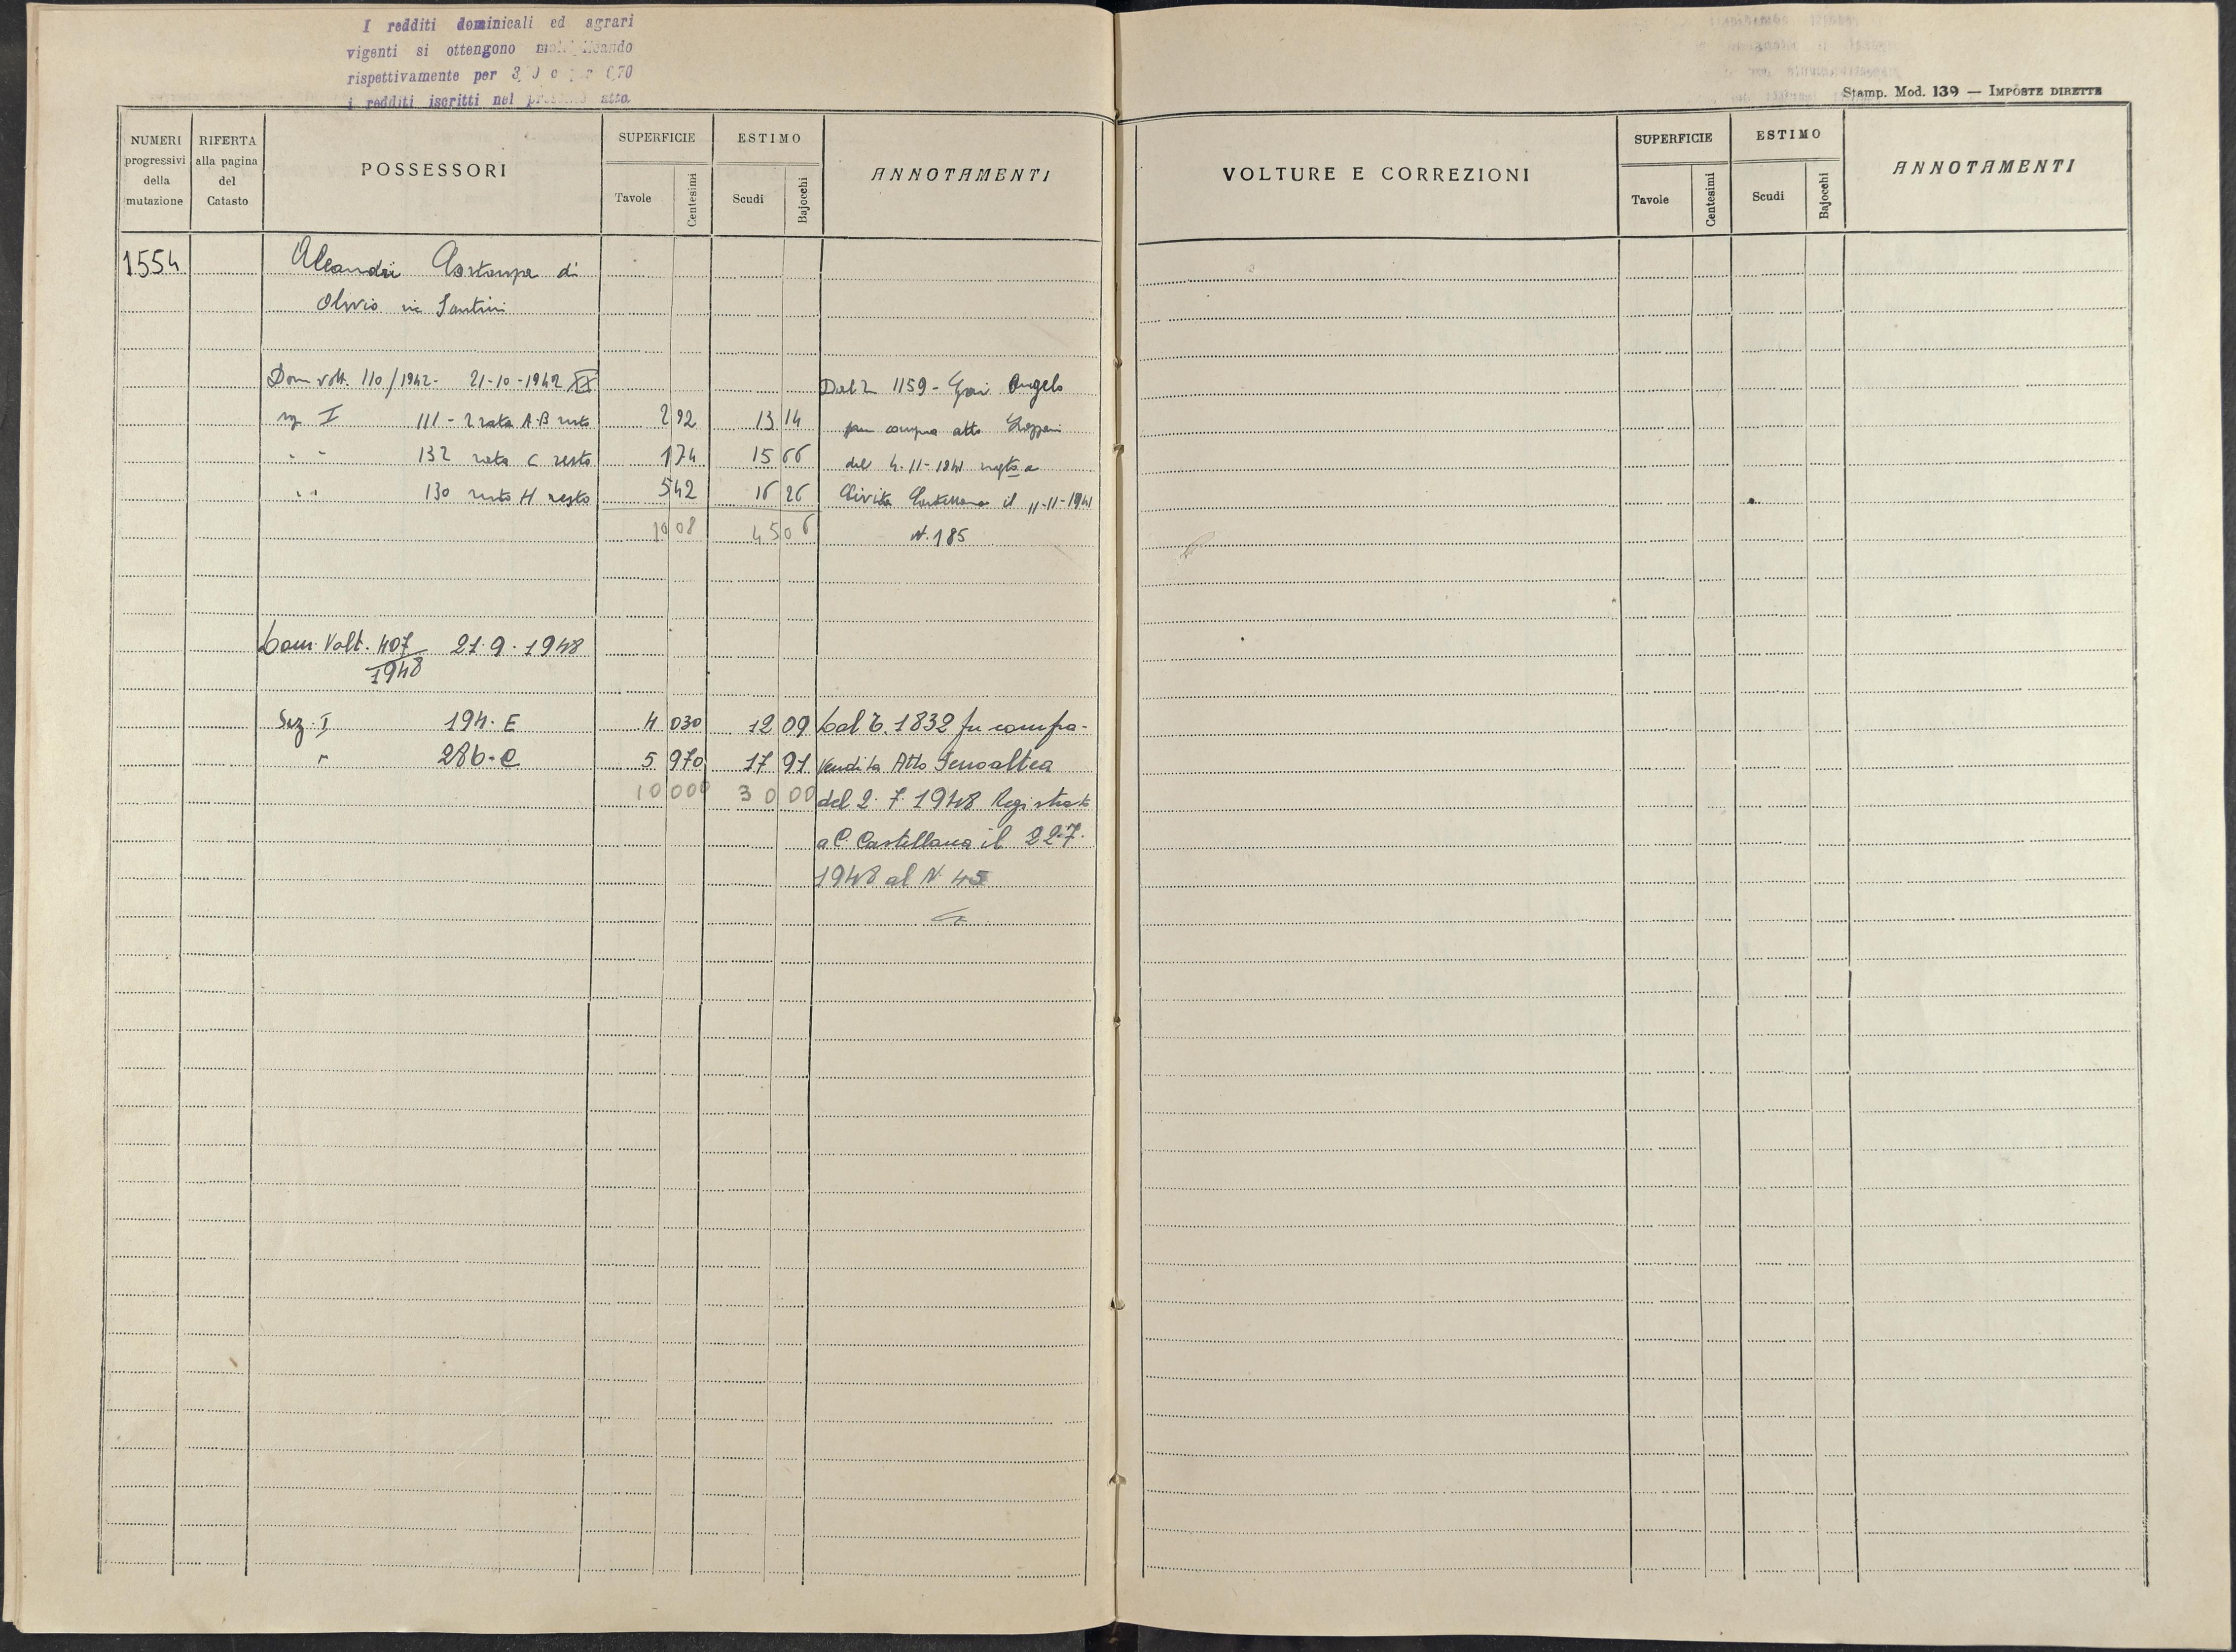 I redditi dominicali ed agrari
vigenti si ottengono moltiplicando
rispettivamente per 3, 0 e per 0,70
i redditi iscritti nel presente atto.
Stamp. Mod. 139 — IMPOSTE DIRETTE
NUMERI progressivi della mutazione
RIFERTA alla pagina del Catasto
POSSESSORI
SUPERFICIE
Tavole
Centesimi
ESTIMO
Scudi
Bajocchi
ANNOTAMENTI
VOLTURE E CORREZIONI
SUPERFICIE
Tavole
Centesimi
ESTIMO
Scudi
Bajocchi
ANNOTAMENTI
1554 Aleandri di
Olivio in Santini
Dom volt. 110/1942 - 21-10-1942 XX Dal 1159 - Angelo
sez I 111 - 2 rata A-B resto 2 92 13 14 per compra atto
" " 132 rata C resto 1 74 15 66 del 4-11-1941 a
" " 130 resto H resto 5 42 16 26 Civita Castellana il 11-11-1941
10 08 45 06 N. 185
Dom. Volt. 407/1948 21.9.1948
Sez. I 194. E 4 030 12 09 Dal 1832 per compra-
" 286. C 5 970 17 91 Vendita Atto Senoaltea
10 000 30 00 del 2.7.1948 Registrato
a C. Castellana il 22.7.
1948 al N. 45